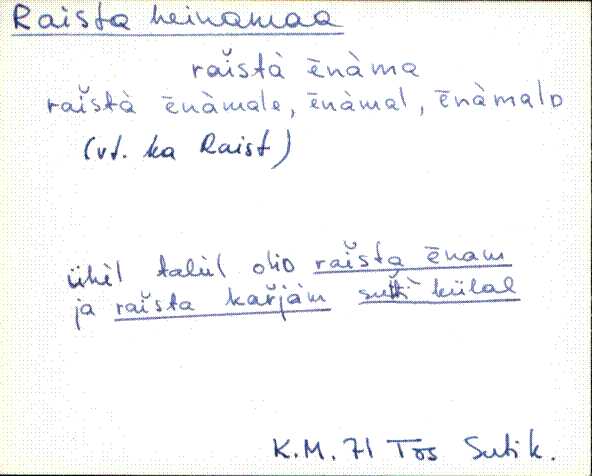 Raista heinamaa
raĭstà ēnàma
raĭstà ēnàmale, ēnàmal, ēnàmalᴅ
(vt. ka Raist)
ühèl talùl oliᴅ raĭsta ēnam
ja raĭsta kar̆jàm sutì külal
K.M. 71 Tõs Sutik.